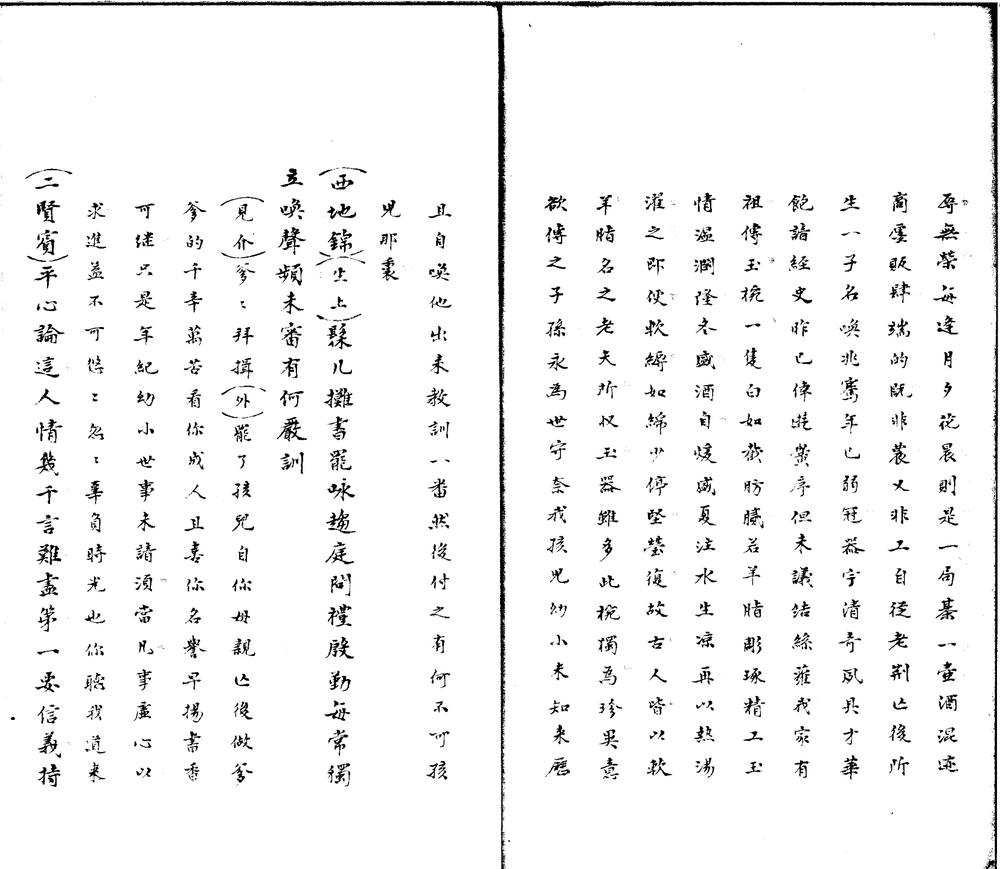 辱無榮每逢月夕花晨則是一局棊一壺酒混迹
商廛販肆端的既非農又非工自從老荆亡後所
生一子名喚兆鸞年已弱冠器宇清奇夙具才華
飽諳經史昨已倖遊黌序但未議結絲蘿我家有
祖傳玉椀一隻白如截肪膩若羊脂彫琢精工玉
情温潤隆冬盛酒自煖盛夏注水生凉再以熱湯
濯之即便軟縟如綿少停堅瑩復故古人皆以軟
羊脂名之老夫所收玉器雖多此椀獨為珍異意
欲傳之子孫永為世守奈我孩兒幼小未知来歷
且自喚他出来教訓一番然後付之有何不可孩
兒那裏
(西地錦)(生上)縹几攤書罷咏趨庭問禮殷勤每常獨
立喚聲頻未審有何嚴訓
(見介)爹〻拜揖(外)罷了孩兒自你母親亡後做爹
爹的千辛萬苦看你成人且喜你名譽早揚書香
可继只是年紀幼小世事未諳須當凡事虛心以
求進益不可悠〻忽〻辜負時光也你聽我道来
(二賢賓)平心論這人情幾千言難盡第一要信義持